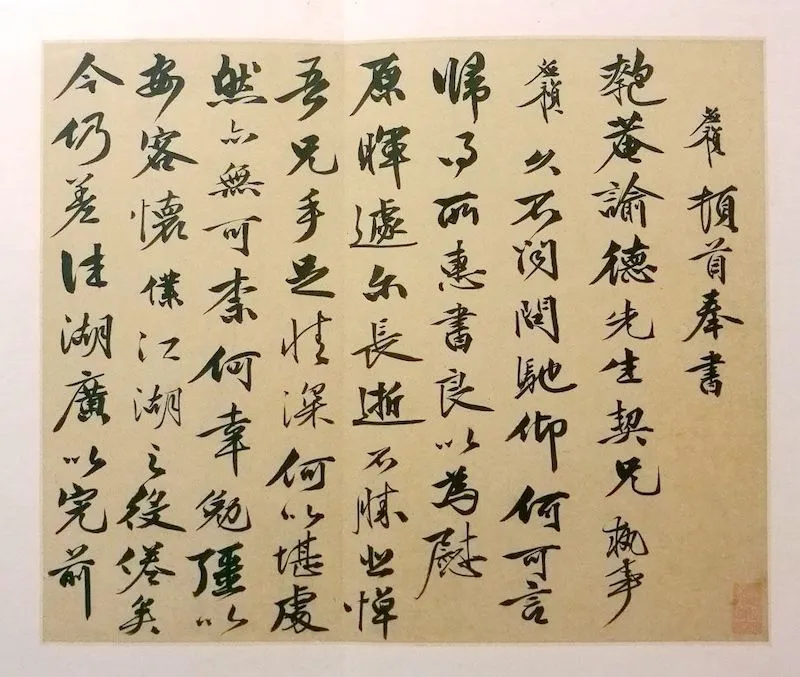 應禎頓首奉書
匏菴諭德先生契兄執事
應禎久不聞問馳仰何可言
歸得所惠書良以為慰
原暉遽尔長逝不勝悲悼
吾兄手足情深何以堪處
然亦無可柰何幸勉彊以
安容懷僕江湖之役倦矣
今仍差往湖廣以完前